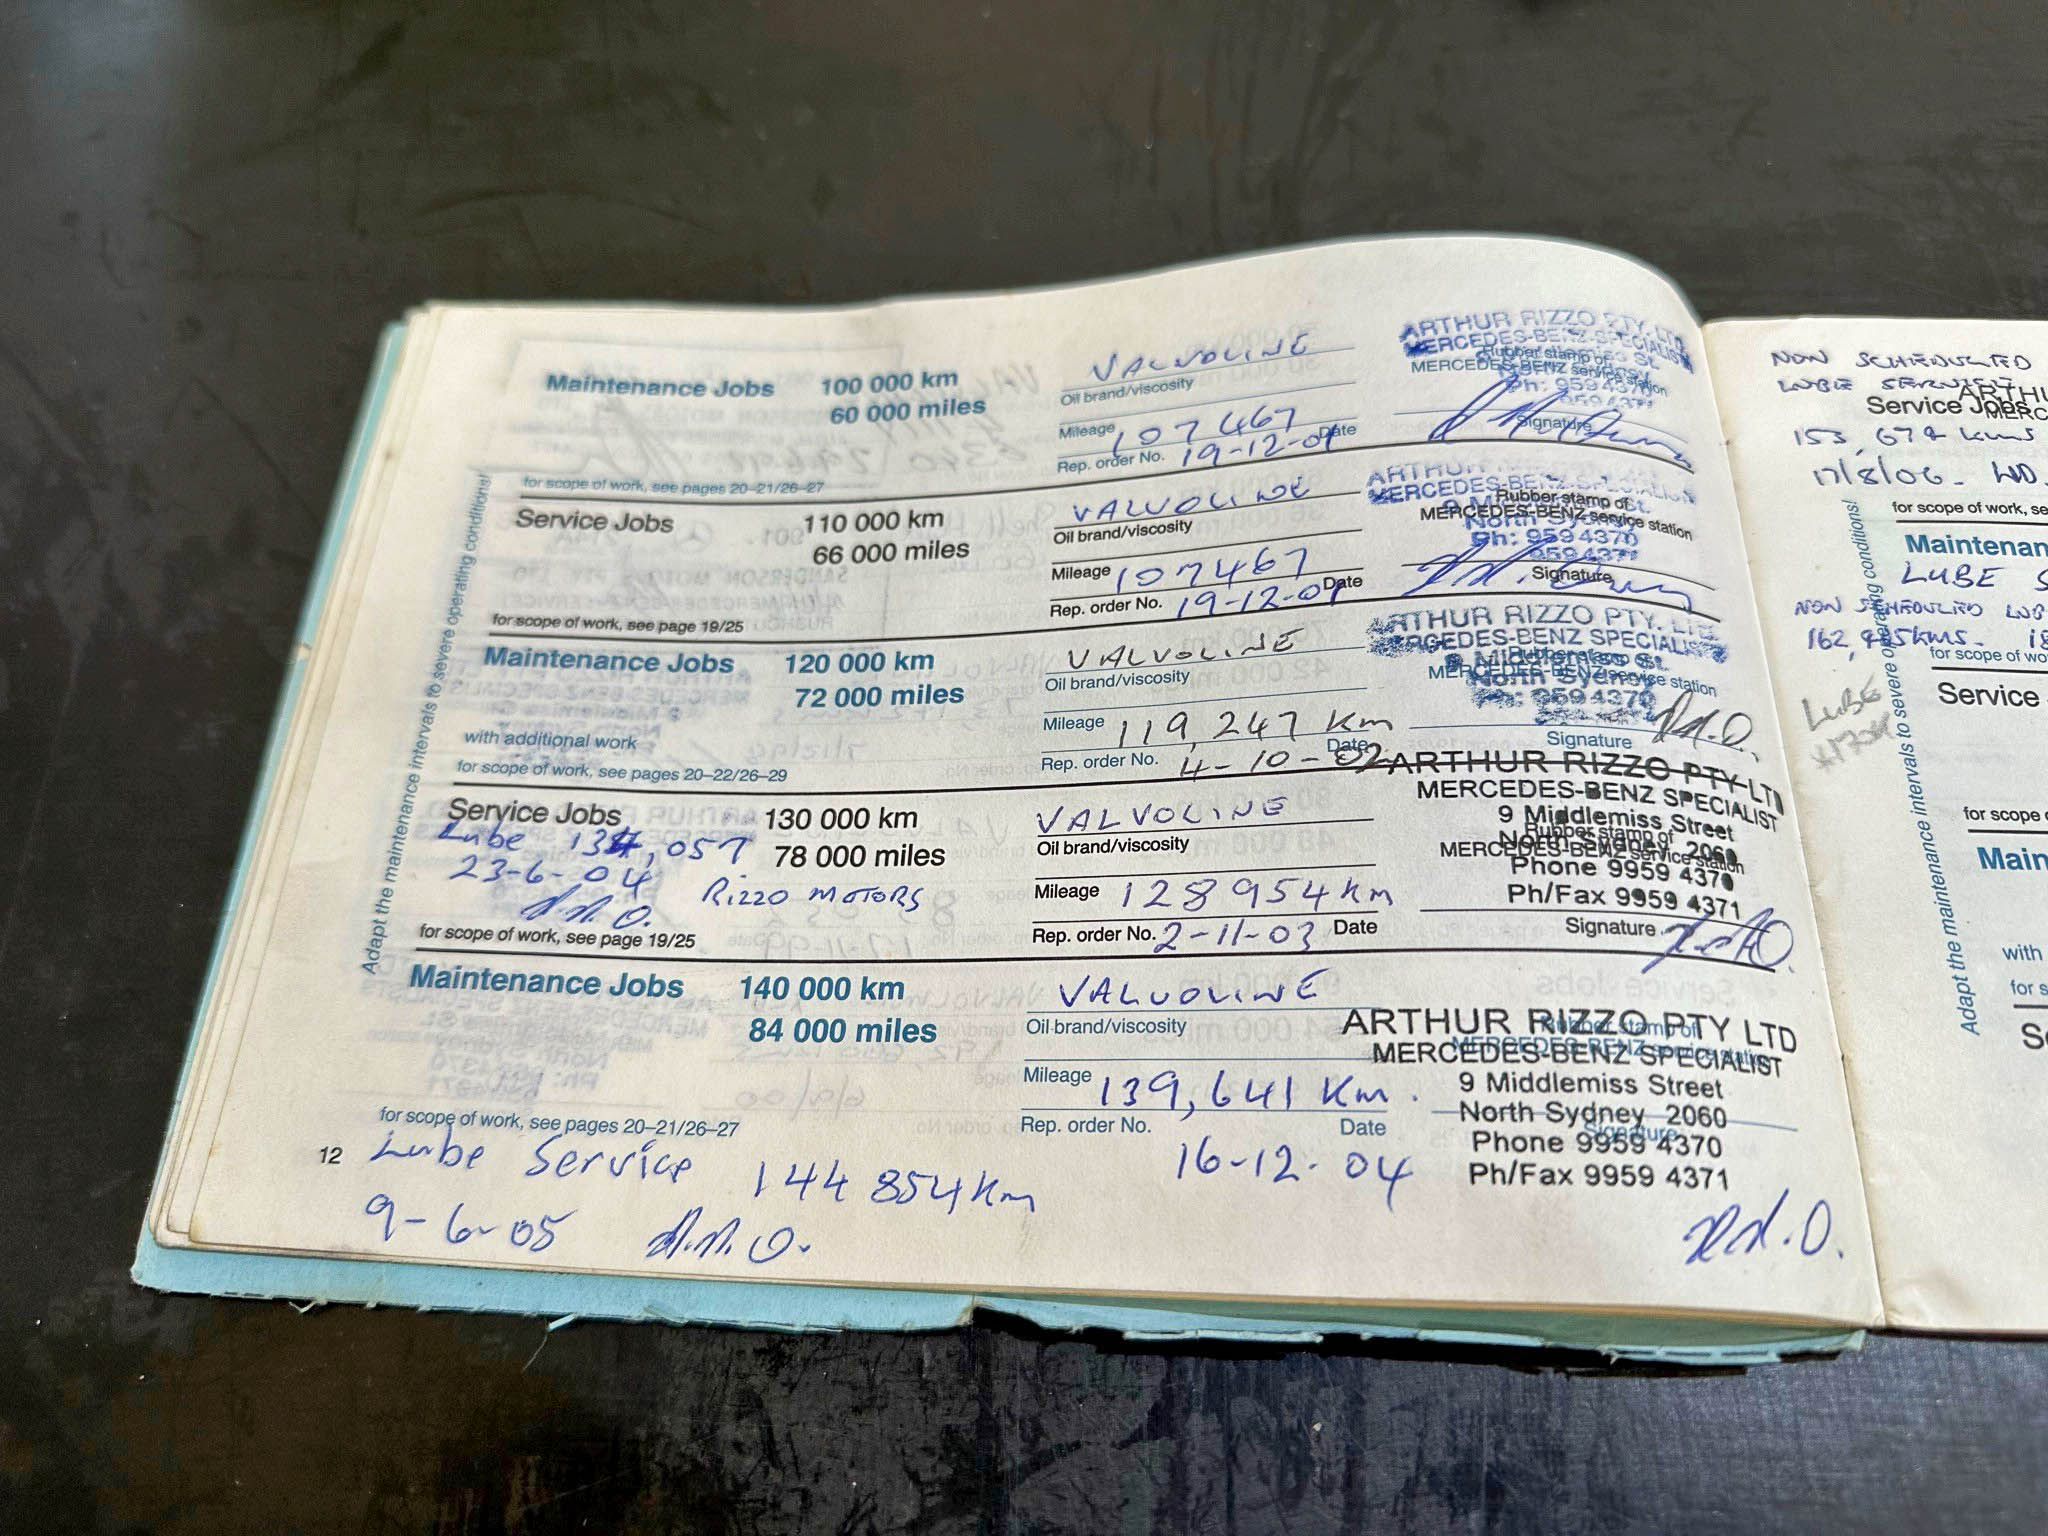 Maintenance Jobs 100 000 km
60 000 miles
VALVOLINE
Oil brand/viscosity
Mileage 107467
Rep. order No. 19-12-01 Date
ARTHUR RIZZO PTY. LTD
MERCEDES-BENZ SPECIALIST
Rubber stamp of
MERCEDES-BENZ service station
Ph: 959 4370
959 4371
Signature
for scope of work, see pages 20–21/26–27
Service Jobs 110 000 km
66 000 miles
VALVOLINE
Oil brand/viscosity
Mileage 107467
Rep. order No. 19-12-01 Date
ARTHUR RIZZO PTY. LTD
MERCEDES-BENZ SPECIALIST
Rubber stamp of
MERCEDES-BENZ service station
North Sydney
Ph: 959 4370
959 4371
Signature
for scope of work, see page 19/25
Maintenance Jobs 120 000 km
72 000 miles
with additional work
for scope of work, see pages 20–22/26–29
VALVOLINE
Oil brand/viscosity
Mileage 119,247 Km
Rep. order No. 4-10-02 Date
ARTHUR RIZZO PTY. LTD
MERCEDES-BENZ SPECIALIST
9 Middlemiss St.
Rubber stamp of
MERCEDES-BENZ service station
North Sydney
Ph: 959 4370
Signature
Service Jobs 130 000 km
78 000 miles
Lube 134,057
23-6-04
RIZZO MOTORS
for scope of work, see page 19/25
VALVOLINE
Oil brand/viscosity
Mileage 128954 Km
Rep. order No. 2-11-03 Date
ARTHUR RIZZO PTY LTD
MERCEDES-BENZ SPECIALIST
9 Middlemiss Street
Rubber stamp of
North Sydney 2060
MERCEDES-BENZ service station
Phone 9959 4370
Ph/Fax 9959 4371
Signature
Maintenance Jobs 140 000 km
84 000 miles
for scope of work, see pages 20–21/26–27
VALVOLINE
Oil brand/viscosity
Mileage 139,641 Km.
Rep. order No. Date
16-12-04
ARTHUR RIZZO PTY LTD
Rubber stamp of
MERCEDES-BENZ SPECIALIST
MERCEDES-BENZ service station
9 Middlemiss Street
North Sydney 2060
Signature
Phone 9959 4370
Ph/Fax 9959 4371
12
Lube Service 144 854 Km
9-6-05
Adapt the maintenance intervals to severe operating conditions!
NON SCHEDULED
LUBE SERVICE
Service Jobs
153,674 kms
17/8/06.
for scope of work, se
Maintenan
LUBE S
NON SCHEDULED LUB
162,
for scope of wo
LUBE
Service
for scope o
Main
with
for s
Adapt the maintenance intervals to severe operating conditions!